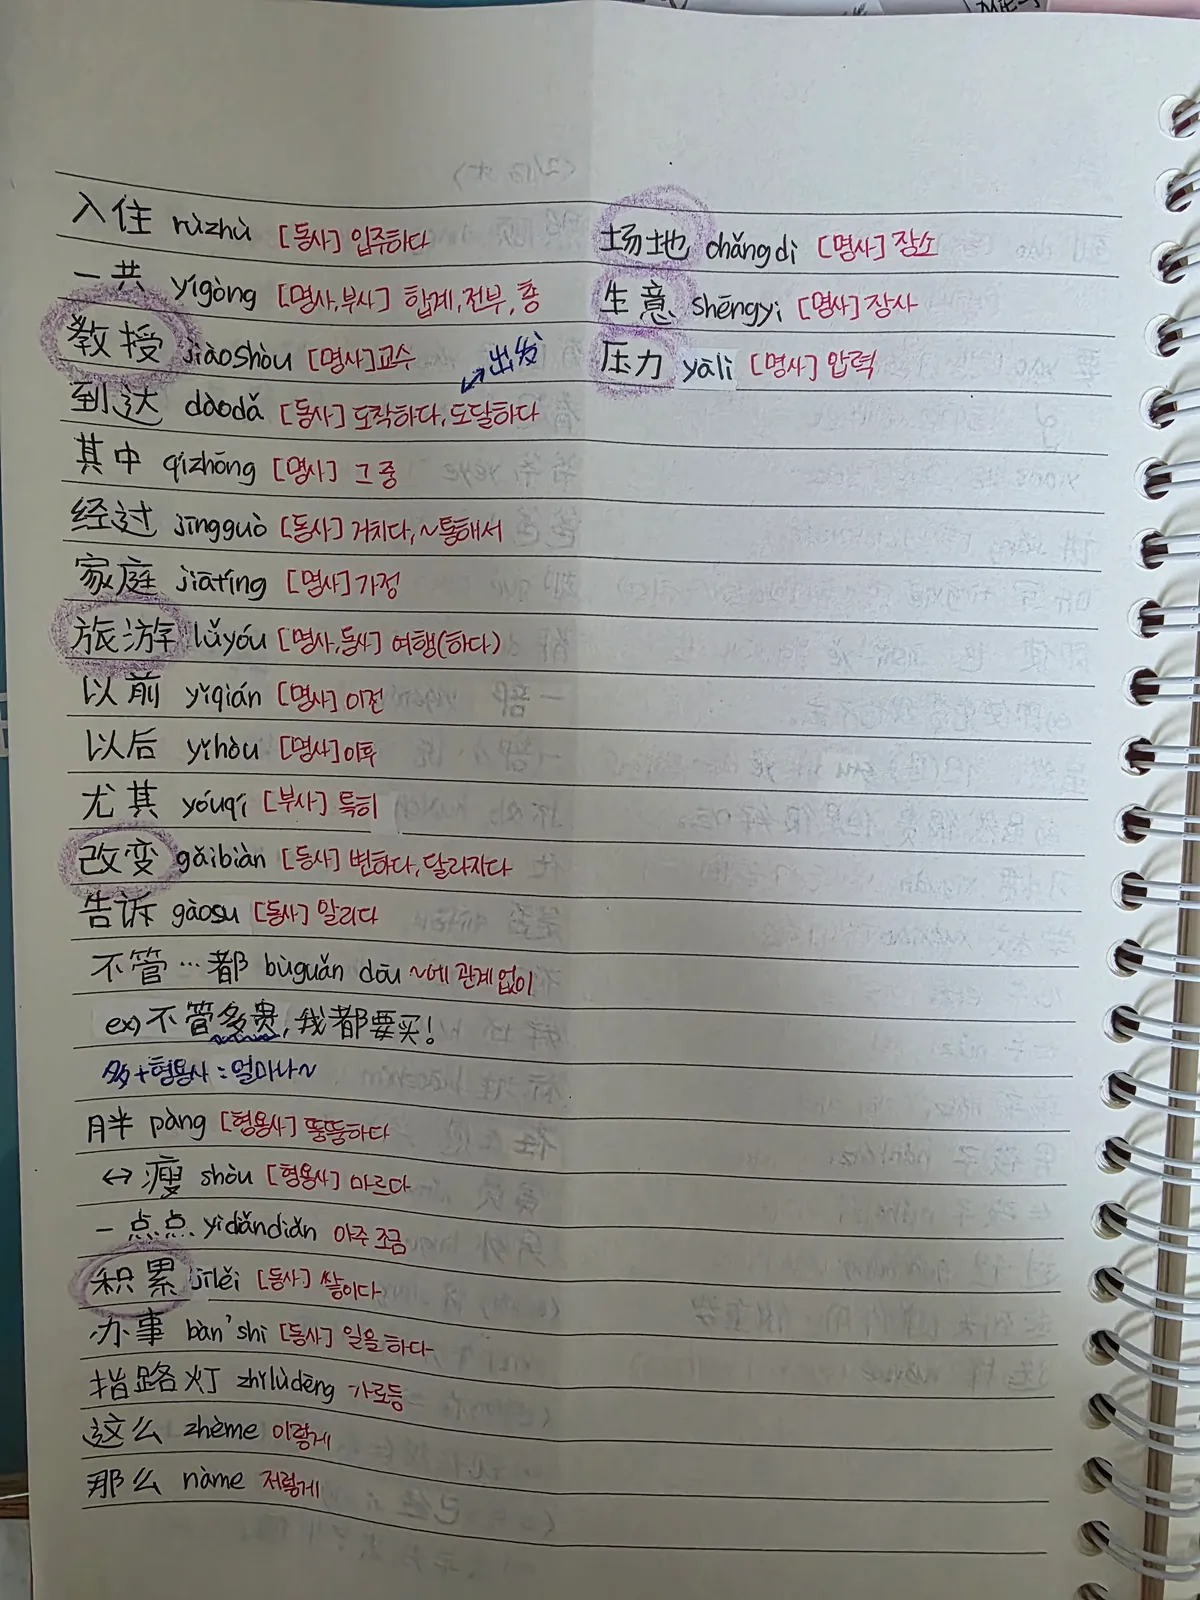 入住 rùzhù [동사] 입주하다
一共 yígòng [명사,부사] 합계, 전부, 총
教授 jiàoshòu [명사] 교수
↔ 出发
到达 dàodá [동사] 도착하다, 도달하다
其中 qízhōng [명사] 그 중
经过 jīngguò [동사] 거치다, ~통해서
家庭 jiātíng [명사] 가정
旅游 lǚyóu [명사,동사] 여행(하다)
以前 yǐqián [명사] 이전
以后 yǐhòu [명사] 이후
尤其 yóuqí [부사] 특히
改变 gǎibiàn [동사] 변하다, 달라지다
告诉 gàosu [동사] 알리다
不管…都 bùguǎn dōu ~에 관계없이
ex) 不管多贵, 我都要买!
多+형용사 = 얼마나~
胖 pàng [형용사] 뚱뚱하다
↔ 瘦 shòu [형용사] 마르다
一点点 yìdiǎndiǎn 아주 조금
积累 jīlěi [동사] 쌓이다
办事 bàn'shì [동사] 일을 하다
指路灯 zhǐlùdēng 가로등
这么 zhème 이렇게
那么 nàme 저렇게
场地 chǎngdì [명사] 장소
生意 shēngyi [명사] 장사
压力 yālì [명사] 압력